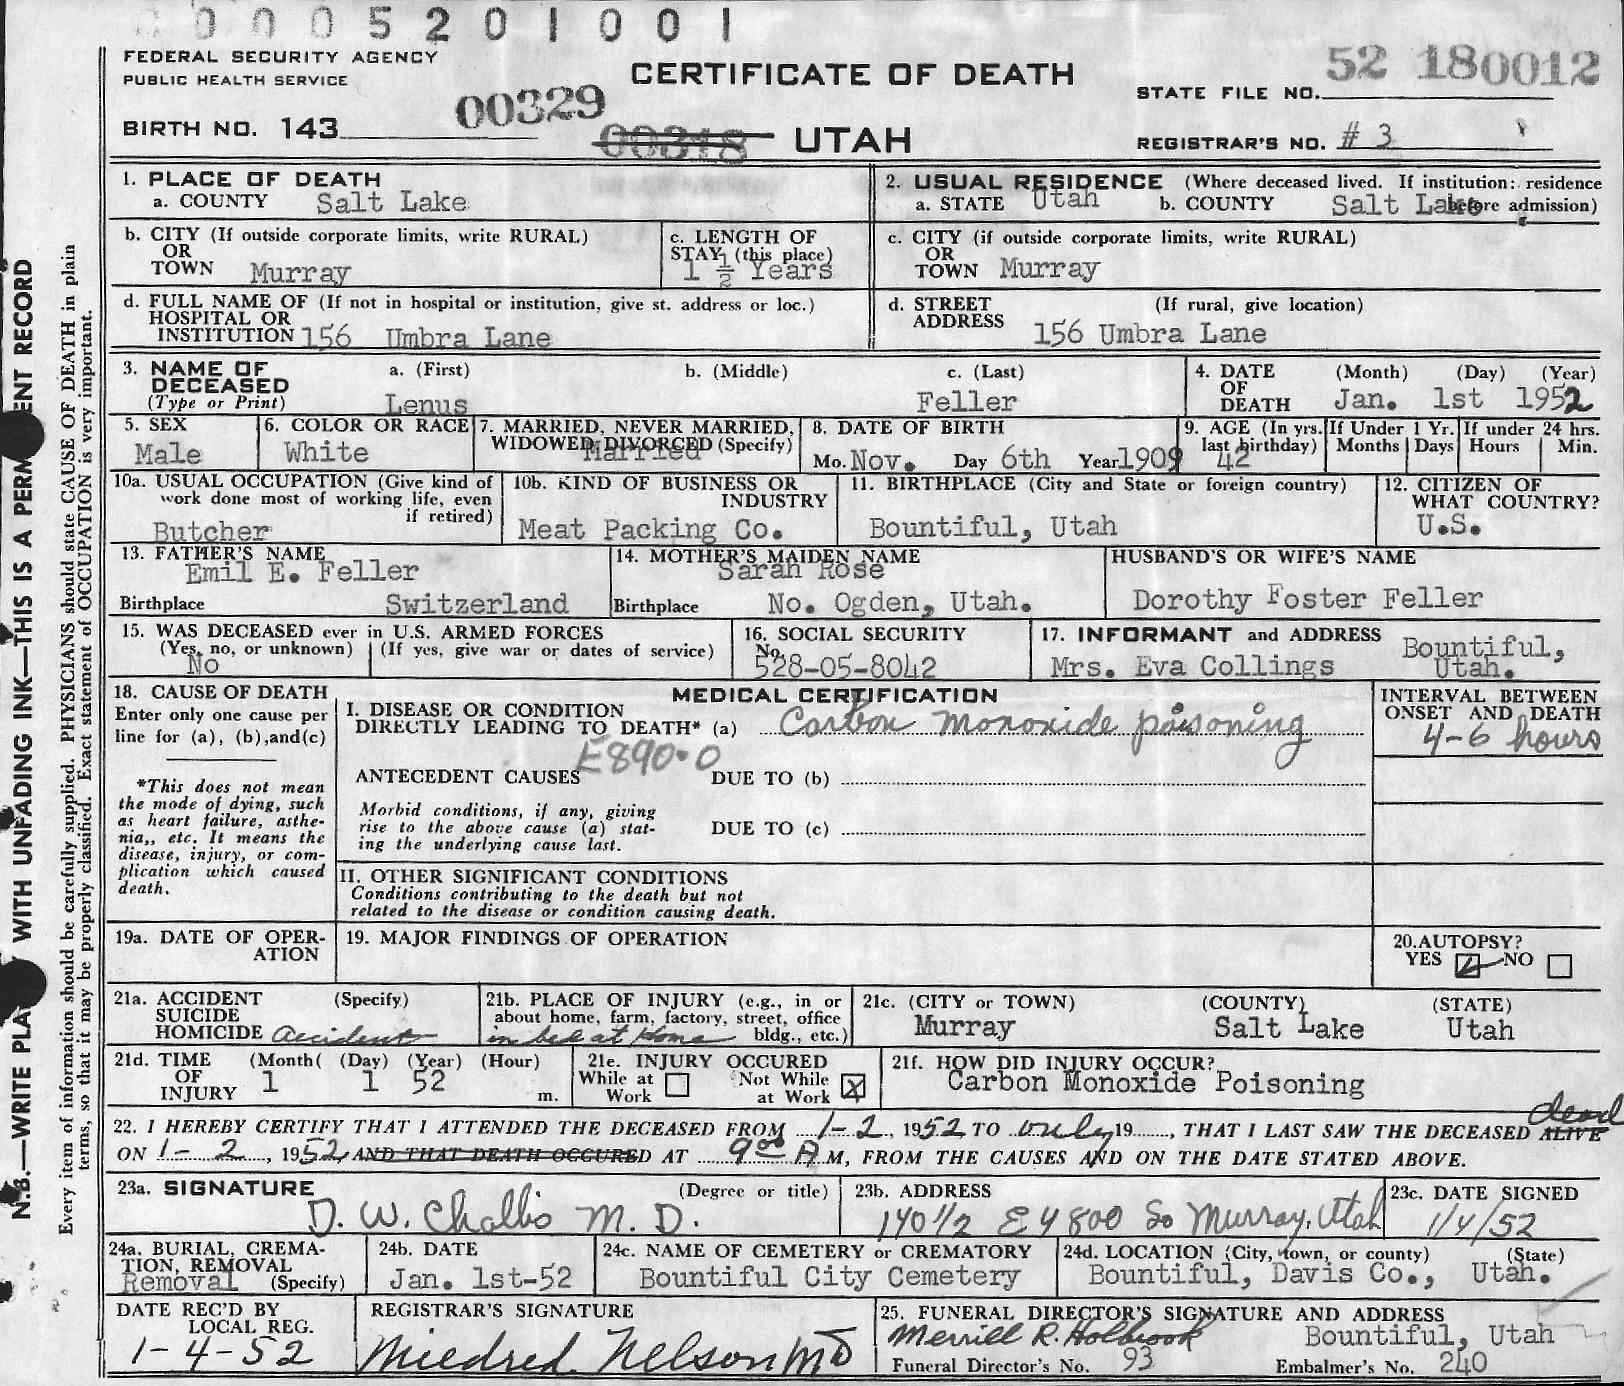 0 0 0 5 2 0 1 0 0 1
FEDERAL SECURITY AGENCY
PUBLIC HEALTH SERVICE
CERTIFICATE OF DEATH
52 180012
STATE FILE NO.
BIRTH NO. 143
00329
00318 UTAH
REGISTRAR'S NO. # 3
N.B.—WRITE PLA WITH UNFADING INK—THIS IS A PERM ENT RECORD
Every item of information should be carefully supplied. PHYSICIANS should state CAUSE OF DEATH in plain
terms, so that it may be properly classified. Exact statement of OCCUPATION is very important.
1. PLACE OF DEATH
a. COUNTY Salt Lake
2. USUAL RESIDENCE (Where deceased lived. If institution: residence
a. STATE Utah b. COUNTY Salt Lake before admission)
b. CITY (If outside corporate limits, write RURAL)
OR
TOWN Murray
c. LENGTH OF
STAY (this place)
1 1/2 Years
c. CITY (if outside corporate limits, write RURAL)
OR
TOWN Murray
d. FULL NAME OF (If not in hospital or institution, give st. address or loc.)
HOSPITAL OR
INSTITUTION 156 Umbra Lane
d. STREET (If rural, give location)
ADDRESS 156 Umbra Lane
3. NAME OF a. (First) b. (Middle) c. (Last)
DECEASED
(Type or Print) Lenus Feller
4. DATE (Month) (Day) (Year)
OF
DEATH Jan. 1st 1952
5. SEX
Male
6. COLOR OR RACE
White
7. MARRIED, NEVER MARRIED,
WIDOWED, DIVORCED (Specify)
Married
8. DATE OF BIRTH
Mo. Nov. Day 6th Year 1909
9. AGE (In yrs.
last birthday)
42
If Under 1 Yr.
Months Days
If under 24 hrs.
Hours Min.
10a. USUAL OCCUPATION (Give kind of
work done most of working life, even
if retired)
Butcher
10b. KIND OF BUSINESS OR
INDUSTRY
Meat Packing Co.
11. BIRTHPLACE (City and State or foreign country)
Bountiful, Utah
12. CITIZEN OF
WHAT COUNTRY?
U.S.
13. FATHER'S NAME
Emil E. Feller
Birthplace Switzerland
14. MOTHER'S MAIDEN NAME
Sarah Rose
Birthplace No. Ogden, Utah.
HUSBAND'S OR WIFE'S NAME
Dorothy Foster Feller
15. WAS DECEASED ever in U.S. ARMED FORCES
(Yes, no, or unknown) (If yes, give war or dates of service)
No
16. SOCIAL SECURITY
No.
528-05-8042
17. INFORMANT and ADDRESS Bountiful,
Mrs. Eva Collings Utah.
18. CAUSE OF DEATH
Enter only one cause per
line for (a), (b),and(c)
*This does not mean
the mode of dying, such
as heart failure, asthe-
nia,, etc. It means the
disease, injury, or com-
plication which caused
death.
MEDICAL CERTIFICATION
I. DISEASE OR CONDITION
DIRECTLY LEADING TO DEATH* (a) Carbon monoxide poisoning
E890.0
ANTECEDENT CAUSES DUE TO (b)
Morbid conditions, if any, giving
rise to the above cause (a) stat-
ing the underlying cause last.
DUE TO (c)
II. OTHER SIGNIFICANT CONDITIONS
Conditions contributing to the death but not
related to the disease or condition causing death.
INTERVAL BETWEEN
ONSET AND DEATH
4-6 hours
19a. DATE OF OPER-
ATION
19. MAJOR FINDINGS OF OPERATION
20.AUTOPSY?
YES NO
21a. ACCIDENT (Specify)
SUICIDE
HOMICIDE Accident
21b. PLACE OF INJURY (e.g., in or
about home, farm, factory, street, office
bldg., etc.)
in bed at Home
21c. (CITY or TOWN) (COUNTY) (STATE)
Murray Salt Lake Utah
21d. TIME (Month( (Day) (Year) (Hour)
OF
INJURY 1 1 52 m.
21e. INJURY OCCURED
While at Work
Not While at Work X
21f. HOW DID INJURY OCCUR?
Carbon Monoxide Poisoning
22. I HEREBY CERTIFY THAT I ATTENDED THE DECEASED FROM 1-2, 1952 TO only 19, THAT I LAST SAW THE DECEASED ALIVE dead
ON 1-2, 1952, AND THAT DEATH OCCURED AT 9 00 A M, FROM THE CAUSES AND ON THE DATE STATED ABOVE.
23a. SIGNATURE (Degree or title)
D. W. Challis M. D.
23b. ADDRESS
140 1/2 E 4800 So Murray, Utah
23c. DATE SIGNED
1/4/52
24a. BURIAL, CREMA-
TION, REMOVAL
Removal (Specify)
24b. DATE
Jan. 1st-52
24c. NAME OF CEMETERY or CREMATORY
Bountiful City Cemetery
24d. LOCATION (City, town, or county) (State)
Bountiful, Davis Co., Utah.
DATE REC'D BY
LOCAL REG.
1-4-52
REGISTRAR'S SIGNATURE
Mildred Nelson MD
25. FUNERAL DIRECTOR'S SIGNATURE AND ADDRESS
Merrill R. Holbrook Bountiful, Utah
Funeral Director's No. 93 Embalmer's No. 240